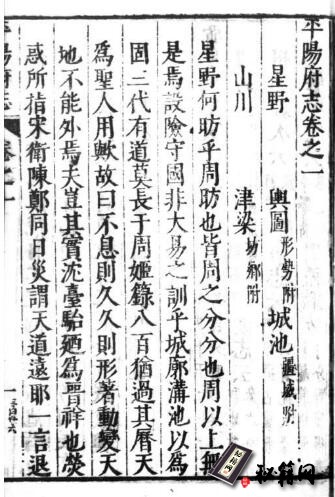 平陽府志卷之一
星野 輿圖形勢附 城池疆域附
山川 津梁坊鄉附
星野何昉乎周昉也皆周之分分也周以上無
是焉設險守國非大易之訓乎城廓溝池以爲
固三代有道莫長于周姬錄八百猶過其曆天
爲聖人用歟故曰不息則久久則形著動變天
地不能外焉夫豈其實沈臺駘廼爲晉祥也熒
惑所指宋衛陳鄭同日災謂天道遠耶一言退
平陽府志 卷之一 一
秘籍网